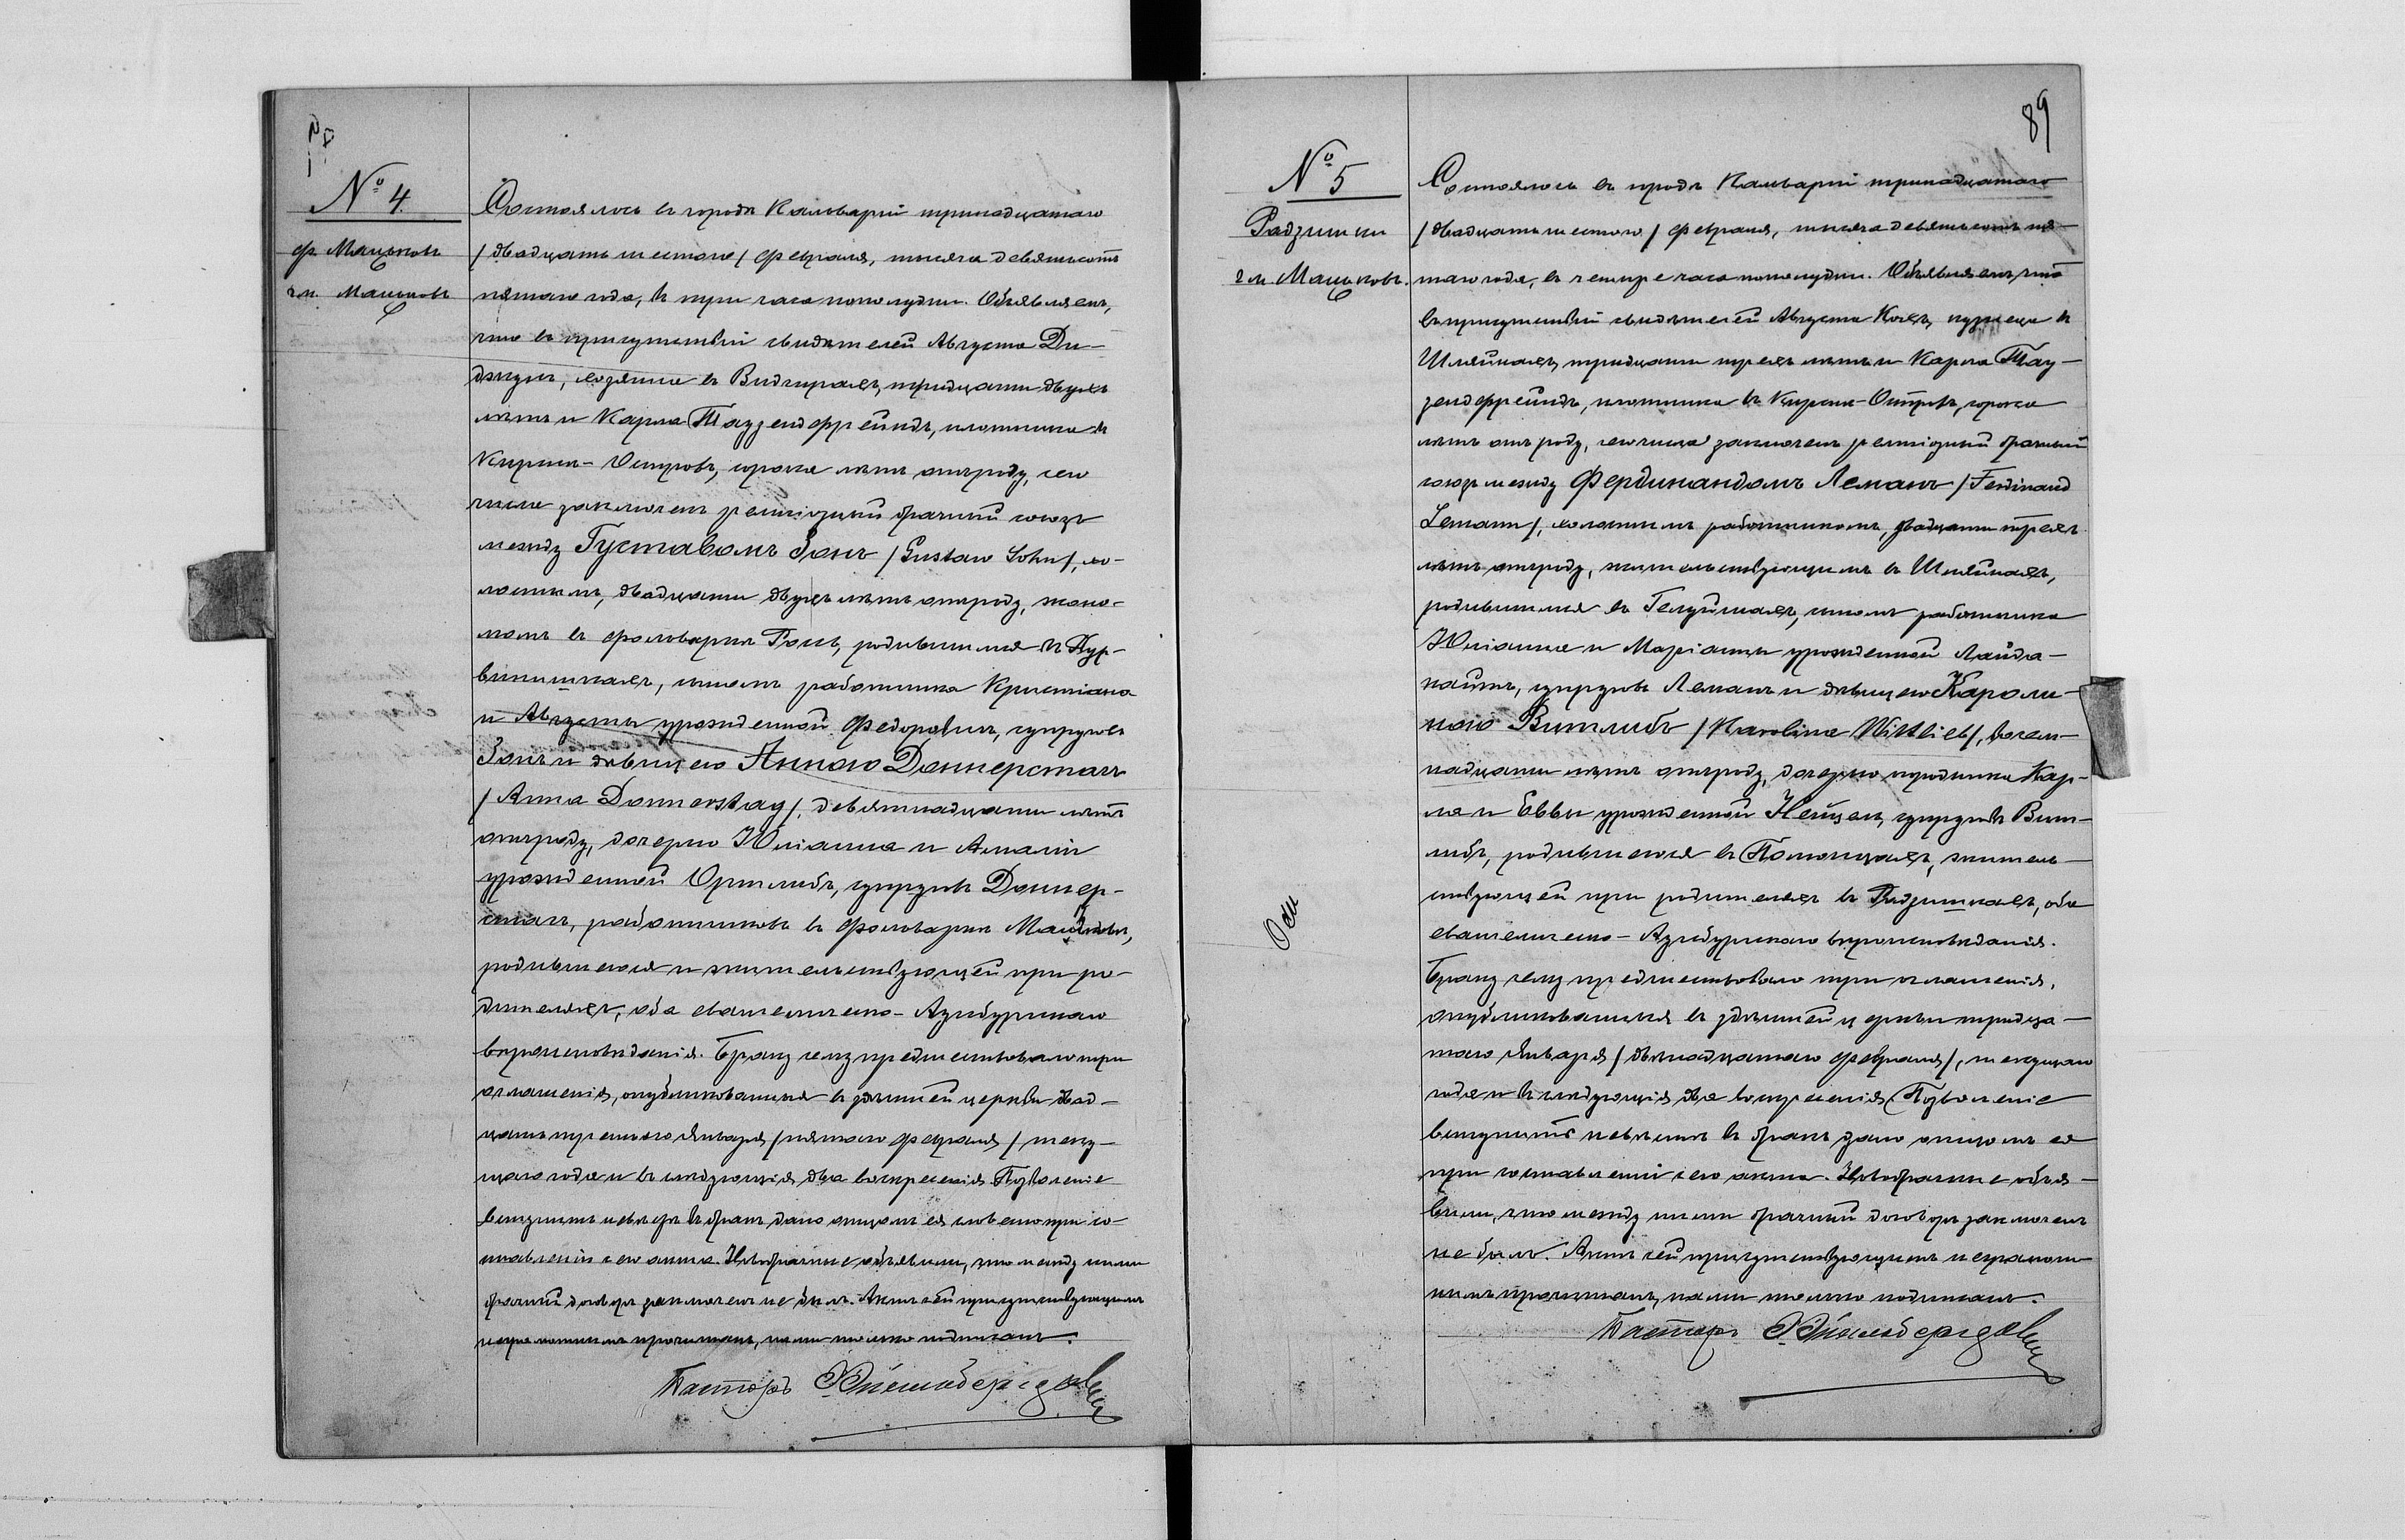 № 4.
ф. Мацковъ
гм. Мацковъ
Состоялось въ городѣ Кальваріи тринадцатаго
/двадцать шестаго/ февраля, тысяча девятьсотъ
пятаго года, въ три часа пополудни. Объявляемъ,
что въ присутствіи свидѣтелей Августа Ди-
хозяина въ Видгирахъ, тридцати двухъ
лѣтъ и Карла Таузендфрейндъ, плотника въ
Кирсна-Островъ, сорока лѣтъ отъ роду, сего
числа заключенъ религіозный брачный союзъ
между Густавомъ Зонъ /Gustaw Sohn/, хо-
лостымъ, двадцати двухъ лѣтъ отъ роду, эконо-
момъ въ фольваркѣ родившимся въ
сыномъ работника Кристіана
и Августы урожденной Федоровичъ, супруговъ
Зонъ и дѣвицею Анною Доннерстагъ
/Anna Donnerstag/, девятнадцати лѣтъ
отъ роду, дочерью Юліанна и Амаліи
урожденной Ортлибъ, супруговъ Доннер-
стагъ, работниковъ въ фольваркѣ Мацковъ,
родившеюся и жительствующей при ро-
дителяхъ, оба евангелическо-Аугсбургскаго
вѣроисповѣданія. Браку сему предшествовало три
оглашенія, опубликованныя въ здѣшней церкви двад-
цать третьяго Января /пятаго февраля/ теку-
щаго года и въ слѣдующія два воскресенія. Позволеніе
вступить невѣстѣ въ бракъ дано отцомъ ея словесно при со-
ставленіи сего акта. Новобрачные объявили, что между ними
брачный договоръ заключенъ не былъ. Актъ сей присутствующимъ
неграмотнымъ прочитанъ, нами только подписанъ.
Пасторъ
89
№ 5
Радзишки
гм. Мацковъ.
Состоялось въ городѣ Кальваріи тринадцатаго
/двадцать шестаго/ февраля, тысяча девятьсотъ пя-
таго года, въ четыре часа пополудни. Объявляемъ, что
въ присутствіи свидѣтелей Августа кузнеца въ
тридцати трехъ лѣтъ и Карла Тау-
зендфрейндъ, плотника въ Кирсна-Островъ, сорока
лѣтъ отъ роду, сего числа заключенъ религіозный брачный
союзъ между Фердинандомъ Леманъ /Ferdinand
Lemann/, холостымъ работникомъ, двадцати трехъ
лѣтъ отъ роду, жительствующимъ въ
родившимся въ сыномъ работника
Юліанна и Маріанны урожденной Лайда-
супруговъ Леманъ и дѣвицею Кароли-
ною Витлибъ /Karolina Wittlieb/, восем-
надцати лѣтъ отъ роду, дочерью Кар-
ла и Еввы урожденной супруговъ Вит-
либъ, родившеюся въ житель-
ствующей при родителяхъ въ Радзишкахъ, оба
евангелическо-Аугсбургскаго вѣроисповѣданія.
Браку сему предшествовало три оглашенія,
опубликованныя въ здѣшней церкви тридца-
таго Января /двѣнадцатаго февраля/, текущаго
года и въ слѣдующія два воскресенія. Позволеніе
вступить невѣстѣ въ бракъ дано отцомъ ея
при составленіи сего акта. Новобрачные объя-
вили, что между ними брачный договоръ заключенъ
не былъ. Актъ сей присутствующимъ неграмот-
нымъ прочитанъ, нами только подписанъ.
Пасторъ